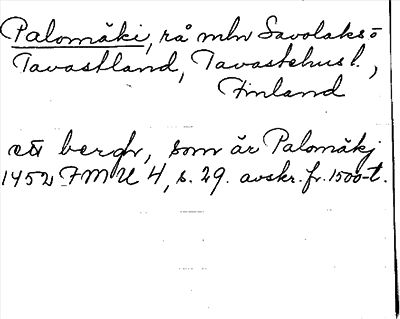 Palomäki, rå mln Savolaks o
Tavastland, Tavastehus l.,
Finland
ett bergh, som är Palomäkj
1452 FMU 4, s. 29. avskr. fr. 1500-t.